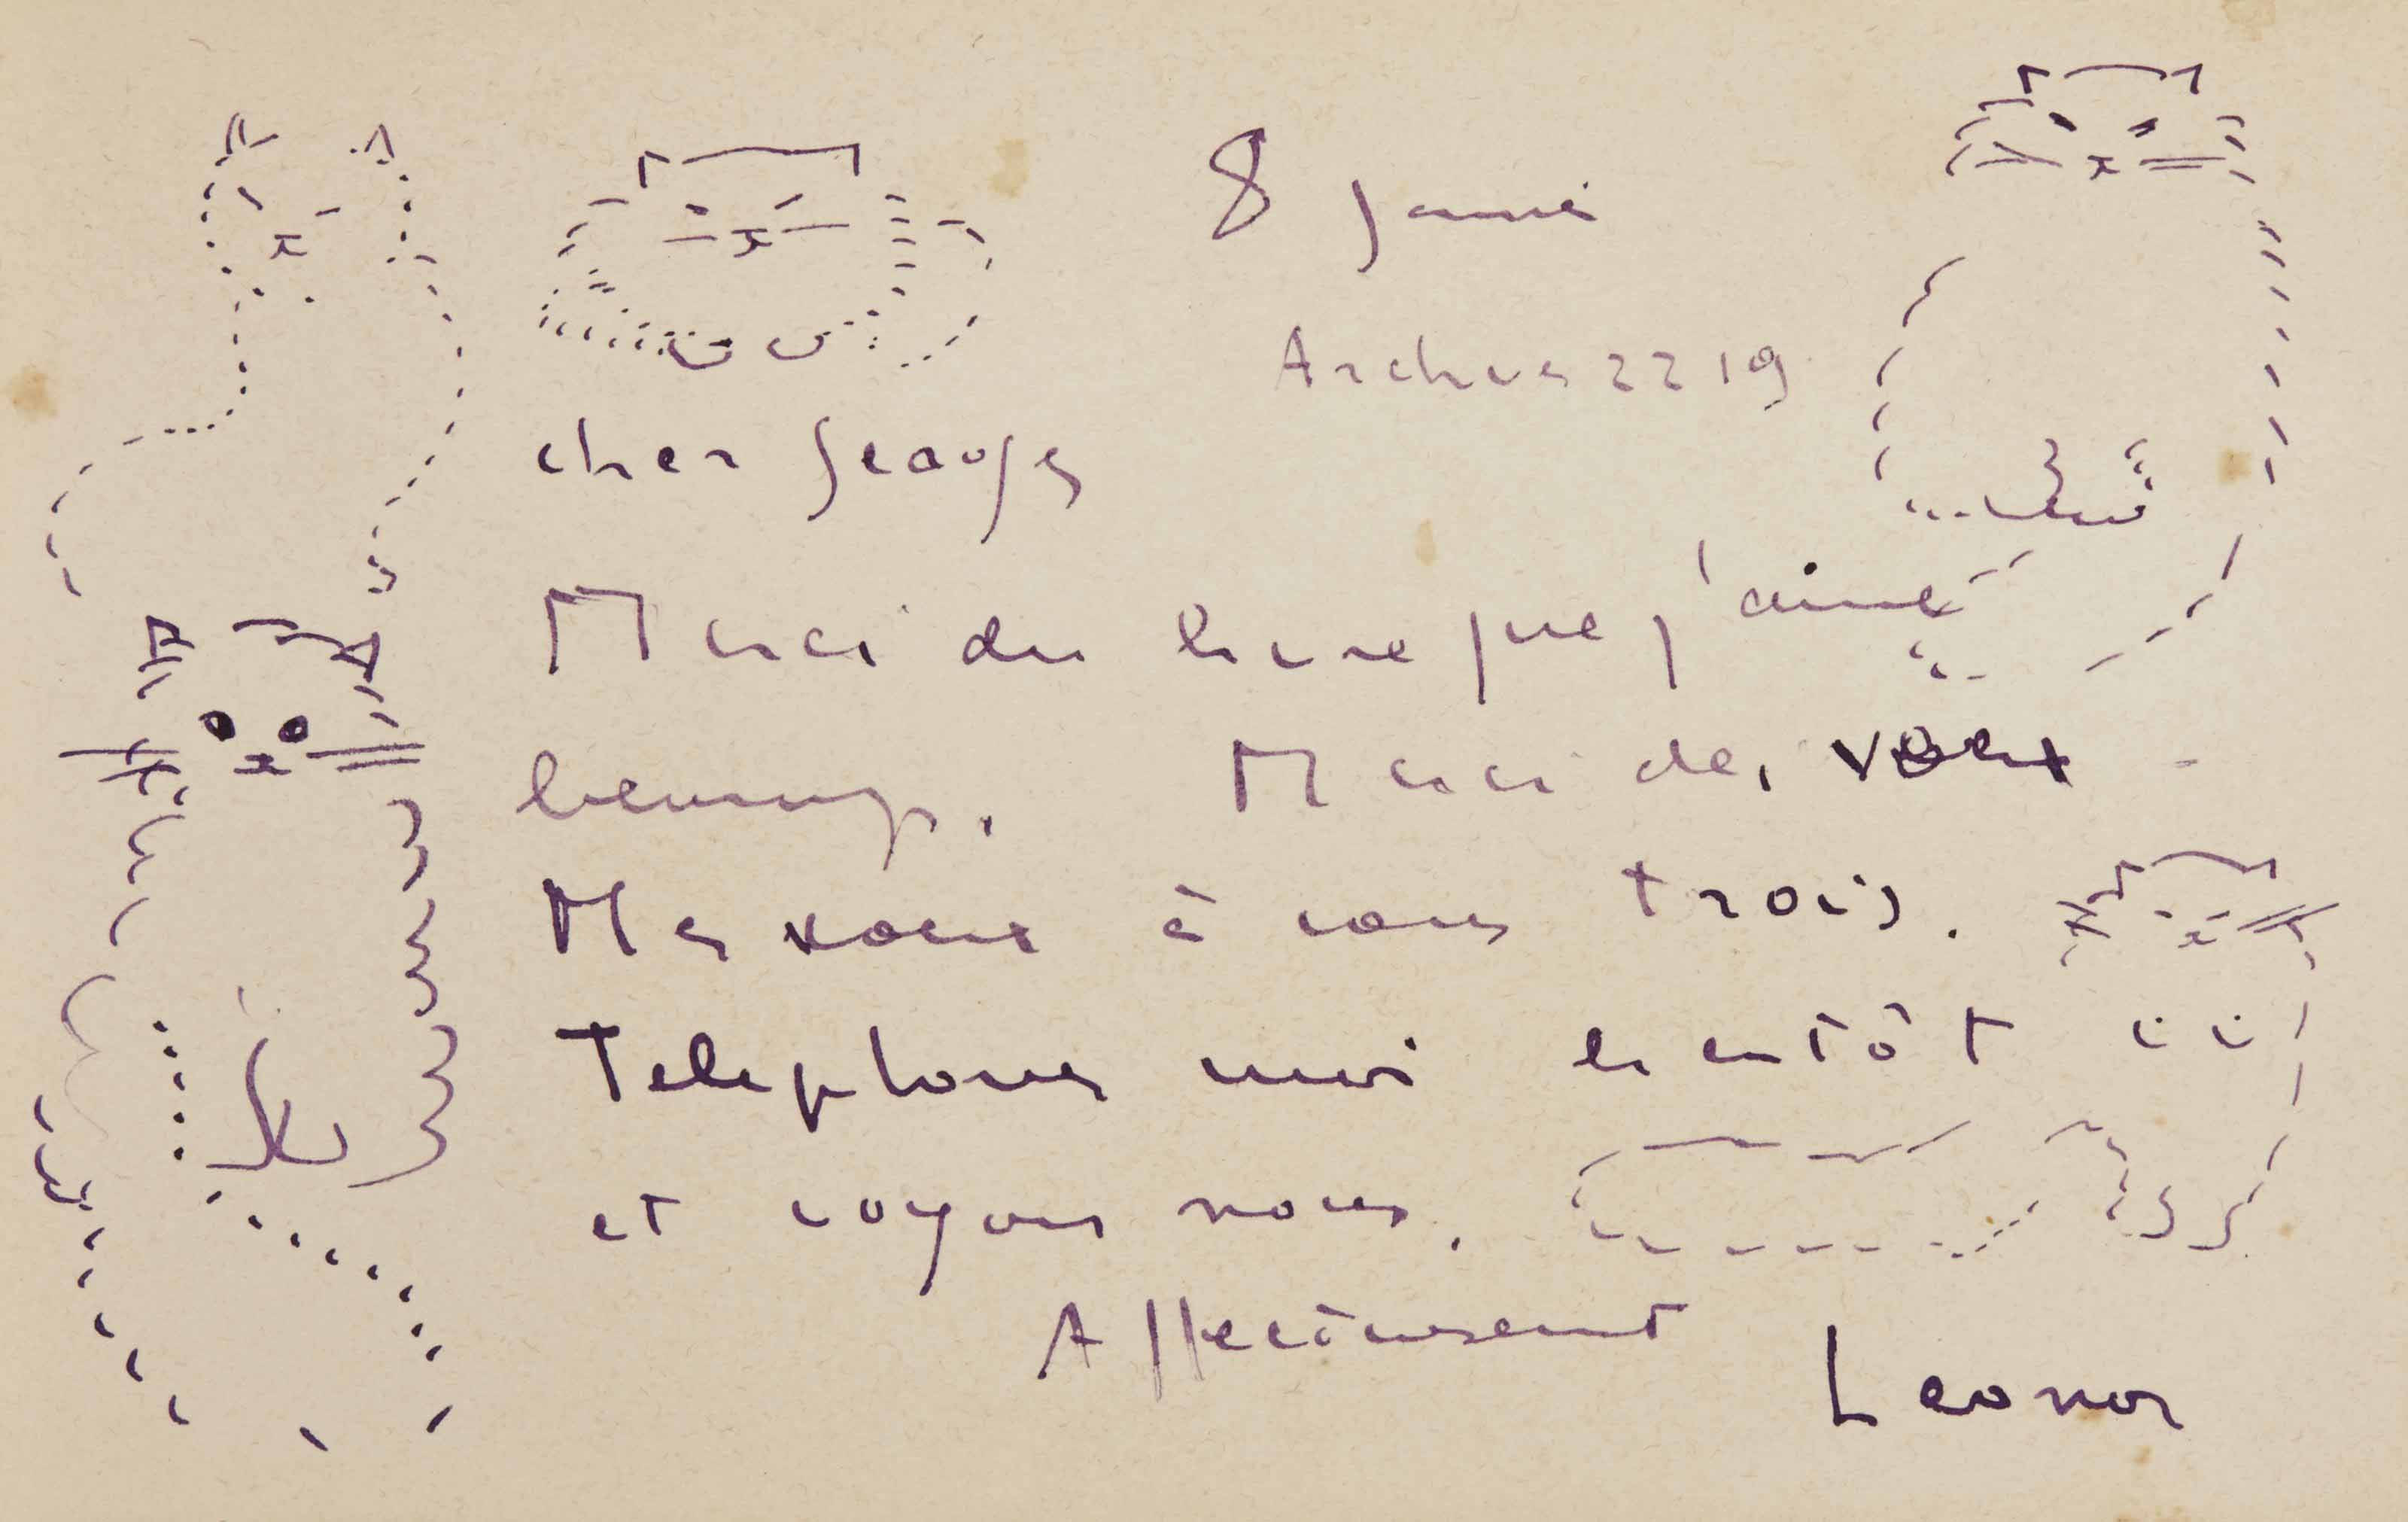 8 Janvi
Archives 22 19
cher Georges
Merci du livre que j'aime
beaucoup. Merci des vœux -
Mes vœux à vous trois.
Telephones moi bientôt
et voyons nous.
Affectueusement
Leonor